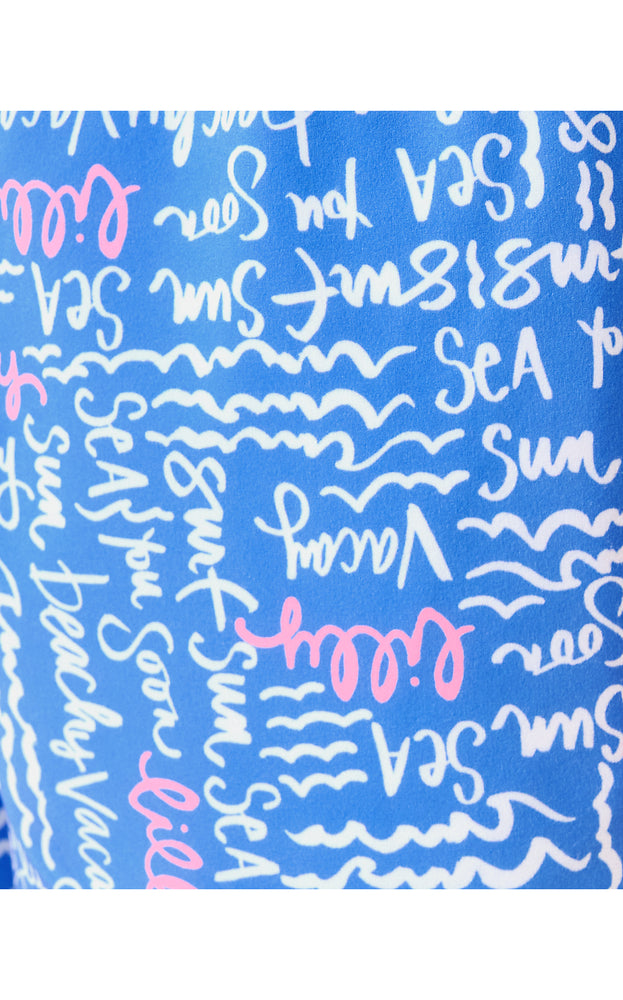 Beachy Vaca
lilly
Sea You Soon
Sea Sun Surf
Surf
Sea Yo
Sun
Vacay
lilly
Soon
Sea Sun
Sea You Soon
Surf Sun Sea
Sun Beachy Vaca
lill